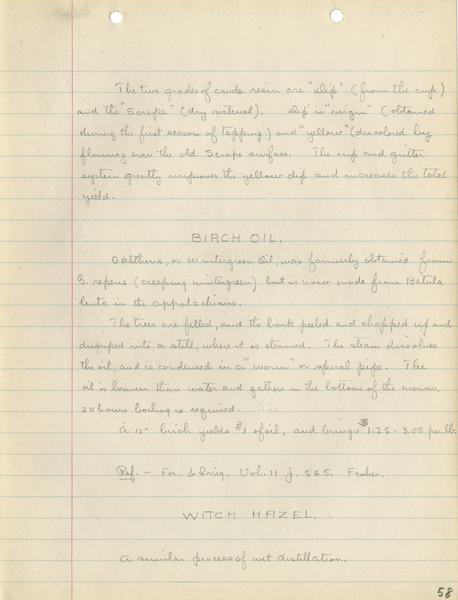 The two grades of crude resin are "dip" (from the cup)
and the "Scrape" (dry material). Dip is "virgin" (obtained
during the first season of tapping) and "yellow" (discolored by
flowing over the old scrape surface. The cup and gutter
system greatly improves the yellow dip and increases the total
yield.
BIRCH OIL.
Galtheria, or Wintergreen Oil, was formerly obtained from
G. repens (creeping wintergreen) but is now made from Betula
lenta in the appalachians.
The trees are felled, and the bark peeled and chopped up and
dumped into a still, where it is steamed. The steam dissolves
the oil, and is condensed in a "worm" or spiral pipe. The
oil is heavier than water and gathers in the bottom of the worm.
24 hours boiling is required.
A 12" birch yields #1 of oil, and brings $1.25 - 3.00 per lb.
Ref. - For. & Irrig. Vol. 11 p. 565. Fisher.
WITCH HAZEL.
A similar process of wet distillation.
58